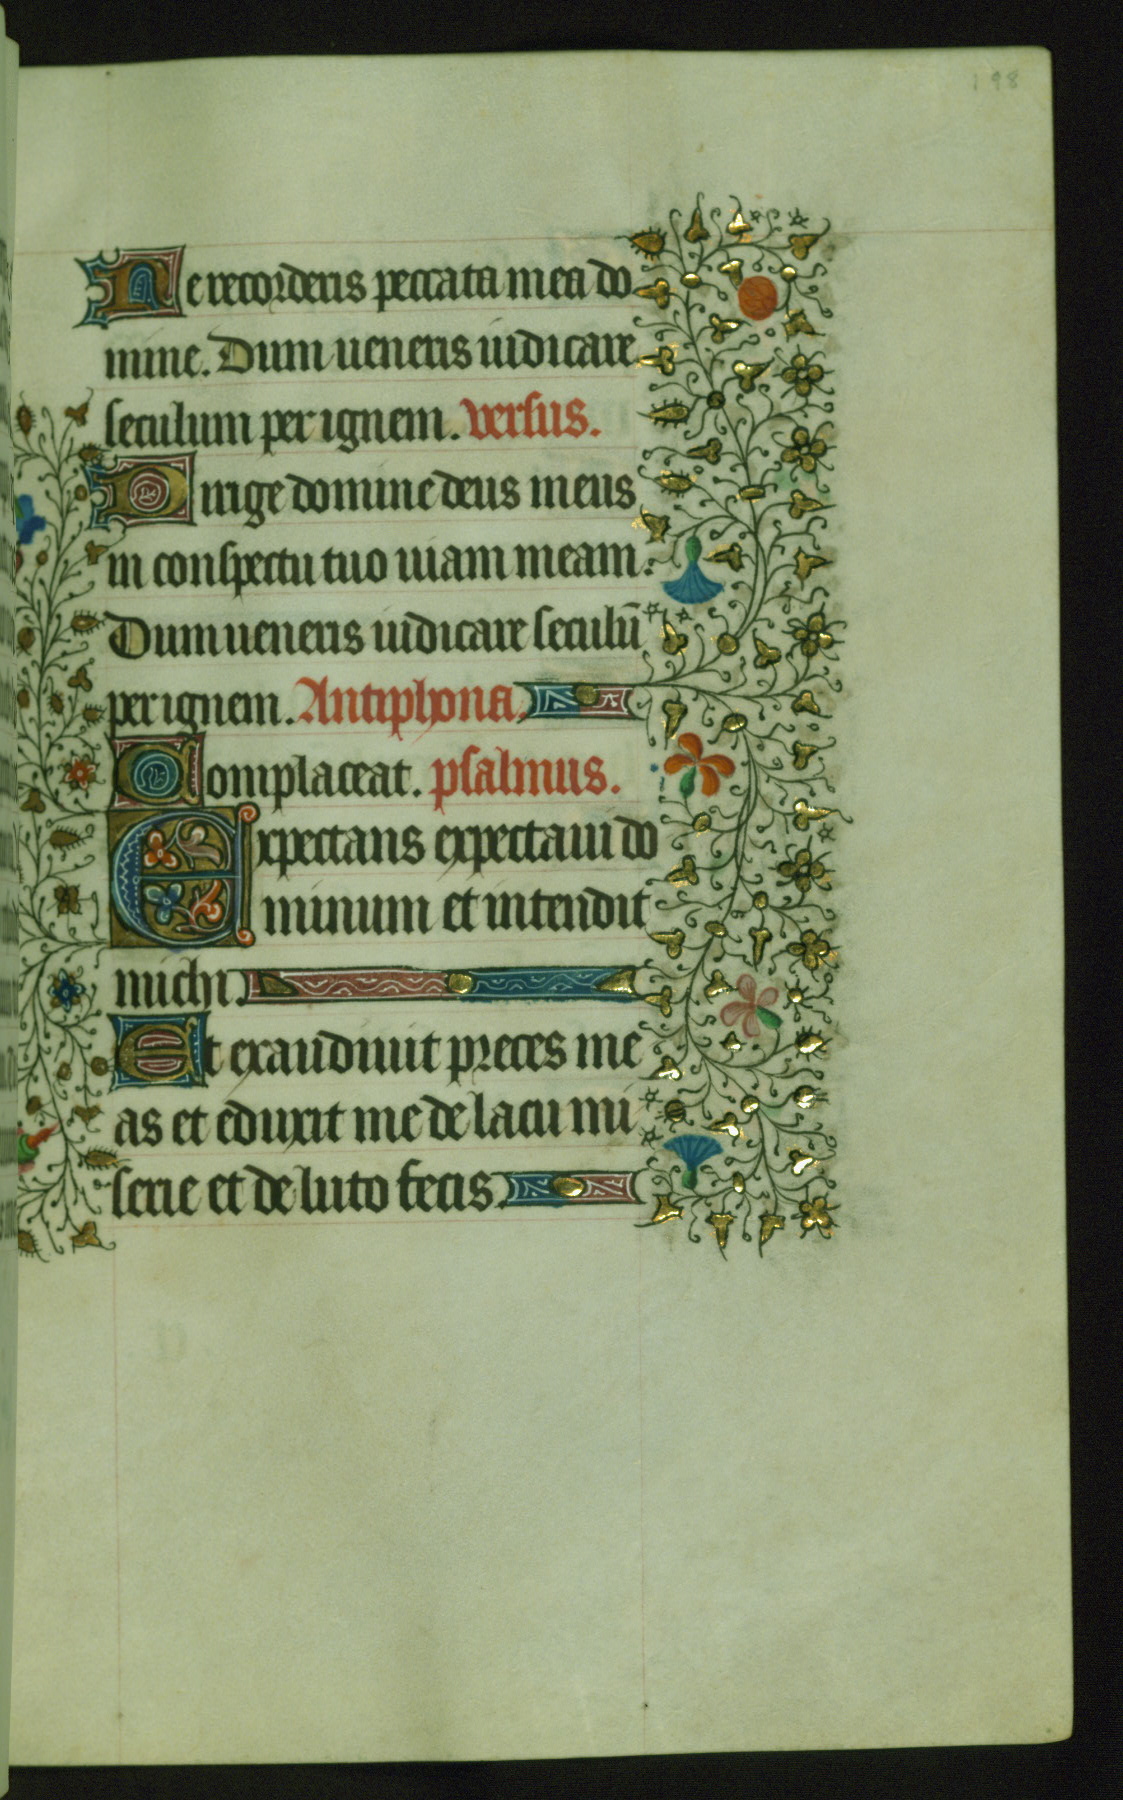 198
Ne recorderis peccata mea do
mine. Dum ueneris iudicare
seculum per ignem. versus.
Dirige domine deus meus
in conspectu tuo uiam meam.
Dum ueneris iudicare seculū
per ignem. Antiphona.
Complaceat. psalmus.
Expectans expectaui do
minum et intendit
michi.
Et exaudiuit preces me
as et eduxit me de lacu mi
serie et de luto fecis.